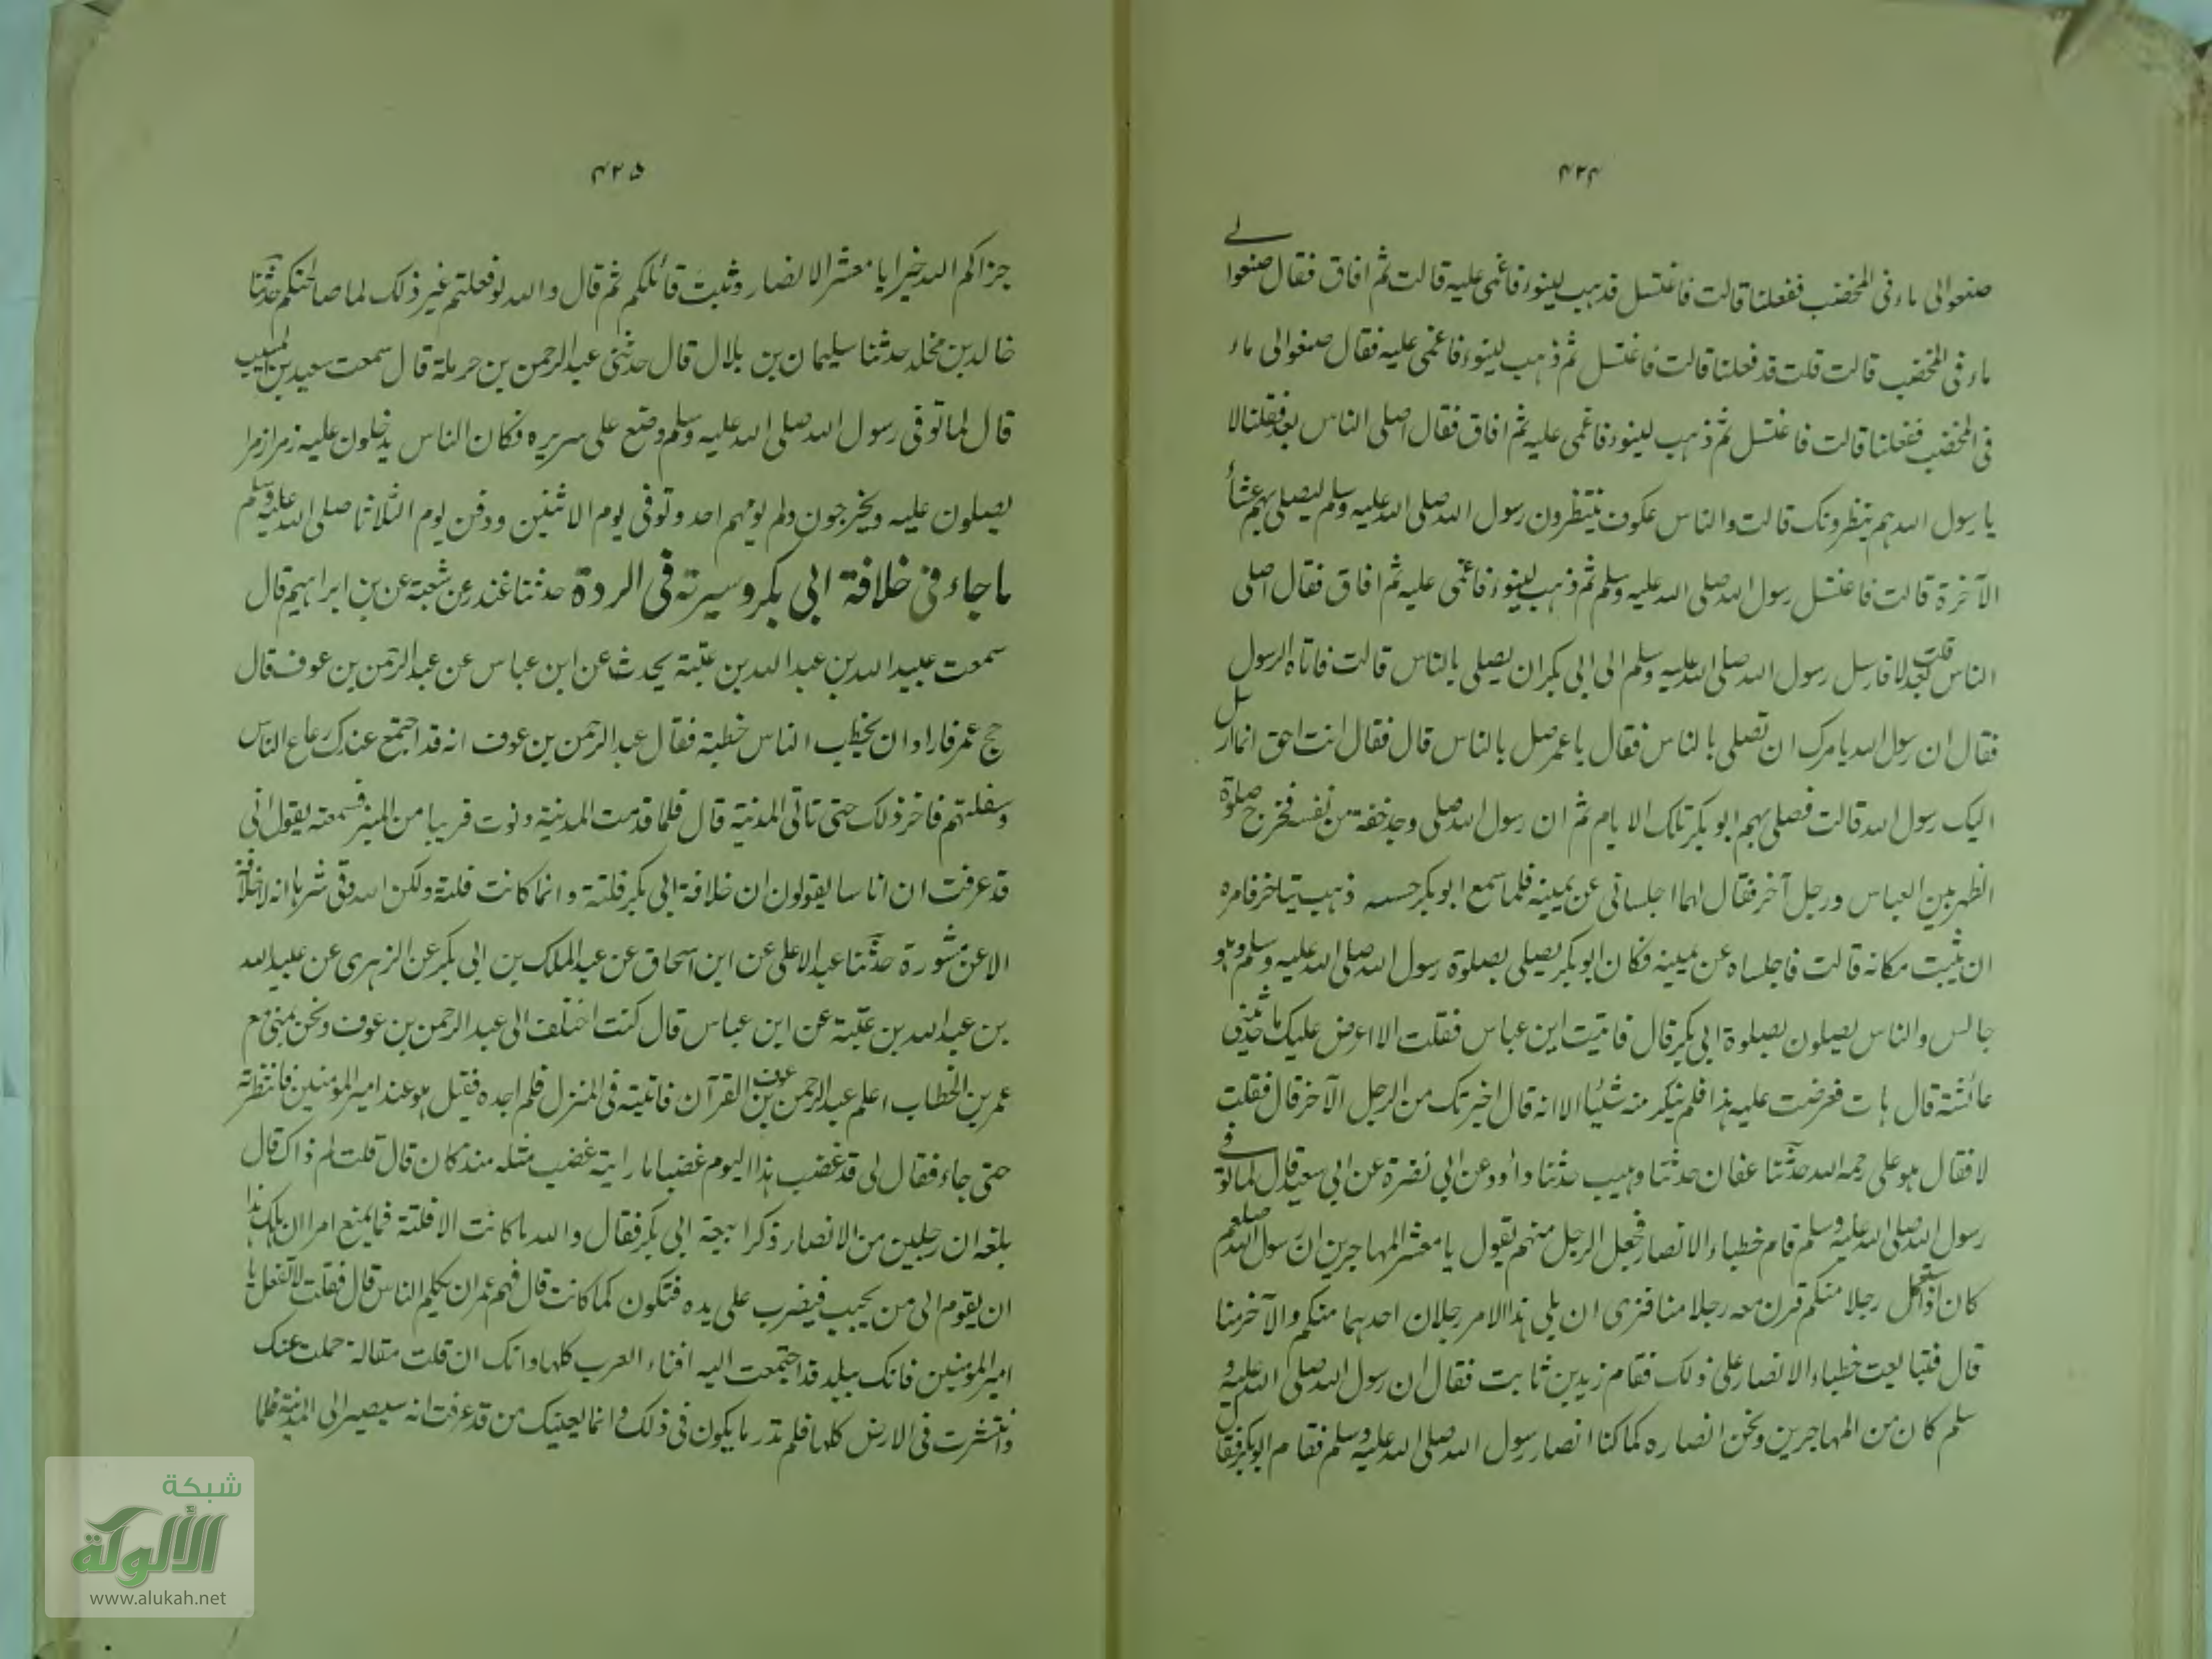 ۴۲۴
صنعوا لی ماء فی المخضب ففعلنا قالت فاغتسل فذهب لینوء فاغمی علیه قالت ثم افاق فقال ضعوا لے
ماء فی المخضب قالت قلت قد فعلنا قالت فاغتسل ثم ذهب لینوء فاغمی علیه فقال ضعوا لی ماء
فی المخضب ففعلنا قالت فاغتسل ثم ذهب لینوء فاغمی علیه ثم افاق فقال اصلی الناس بعد فقلنا لا
یا رسول الله هم ینتظرونک قالت والناس عکوف ینتظرون رسول الله صلی الله علیه وسلم لیصلی بهم عشاء
الآخرة قالت فاغتسل رسول الله صلی الله علیه وسلم ثم ذهب لینوء فاغمی علیه ثم افاق فقال اصلی
الناس بعد قلت لا فارسل رسول الله صلی الله علیه وسلم الی ابی بکر ان یصلی بالناس قالت فاتاه الرسول
فقال ان رسول الله یامرک ان تصلی بالناس فقال یا عمر صل بالناس قال فقال انت احق انما ارسل
الیک رسول الله قالت فصلی بهم ابو بکر تلک الایام ثم ان رسول الله صلی وجد خفة من نفسه فخرج صلوة
الظهر بین العباس ورجل آخر فقال لهما اجلسانی عن یمینه فلما سمع ابو بکر حسه ذهب یتاخر فامره
ان یثبت مکانه قالت فاجلساه عن یمینه فکان ابو بکر یصلی بصلوة رسول الله صلی الله علیه وسلم وهو
جالس والناس یصلون بصلوة ابی بکر قال فاتیت ابن عباس فقلت الا اعرض علیک ما حدثتنی
عائشة قال هات فعرضت علیه هذا فلم ینکر منه شیئا الا انه قال اخبرتک من الرجل الآخر قال فقلت
لا فقال هو علی رحمه الله حدثنا عفان حدثنا وهیب حدثنا داؤد عن ابی نضرة عن ابی سعید قال لما توفے
رسول الله صلی الله علیه وسلم قام خطباء الانصار فجعل الرجل منهم یقول یا معشر المهاجرین ان رسول الله صلعم
کان اذا استعمل رجلا منکم قرن معه رجلا منا فنری ان یلی هذا الامر رجلان احدهما منکم والآخر منا
قال فتبایعت خطباء الانصار علی ذلک فقام زید بن ثابت فقال ان رسول الله صلی الله علیه و
سلم کان من المهاجرین ونحن انصاره کما کنا انصار رسول الله صلی الله علیه وسلم فقام ابو بکر فقال
۴۲۵
جزاکم الله خیرا یا معشر الانصار وثبت قائلکم ثم قال والله لو فعلتم غیر ذلک لما صالحنکم حدثنا
خالد بن مخلد حدثنا سلیمان بن بلال قال حدثنی عبد الرحمن بن حرملة قال سمعت سعید بن المسیب
قال لما توفی رسول الله صلی الله علیه وسلم وضع علی سریره فکان الناس یدخلون علیه زمرا زمرا
یصلون علیه ویخرجون ولم یؤمهم احد وتوفی یوم الاثنین ودفن یوم الثلاثا صلی الله علیه وسلم
ما جاء فی خلافة ابی بکر وسیرته فی الردة حدثنا غندر عن شعبة عن بن ابراهیم قال
سمعت عبید الله بن عبد الله بن عتبة یحدث عن ابن عباس عن عبد الرحمن بن عوف قال
حج عمر فاراد ان یخطب الناس خطبة فقال عبد الرحمن بن عوف انه قد اجتمع عندک رعاع الناس
وسفلتهم فاخر ذلک حتی تاتی المدینة قال فلما قدمت المدینة دنوت قریبا من المنبر فسمعته یقول انی
قد عرفت ان اناسا یقولون ان خلافة ابی بکر فلتة وانما کانت فلتة ولکن الله وقی شرها انه لا خلافة
الا عن مشورة حدثنا عبد الاعلی عن ابن اسحاق عن عبد الملک بن ابی بکر عن الزهری عن عبید الله
بن عبد الله بن عتبة عن ابن عباس قال کنت اختلف الی عبد الرحمن بن عوف ونحن بمنی مع
عمر بن الخطاب اعلم عبد الرحمن بن عوف القرآن فاتیته فی المنزل فلم اجده فقیل هو عند امیر المؤمنین فانتظرته
حتی جاء فقال لی قد غضب هذا الیوم غضبا ما رایته غضب مثله منذ کان قال قلت لم ذاک قال
بلغه ان رجلین من الانصار ذکرا بیعة ابی بکر فقال والله ما کانت الا فلتة فما یمنع امرا ان هلک هذا
ان یقوم الی من یحب فیضرب علی یده فتکون کما کانت قال فهم عمر ان یکلم الناس قال فقلت لا تفعل یا
امیر المؤمنین فانک ببلد قد اجتمعت الیه افناء العرب کلها وانک ان قلت مقالة حملت عنک
وانتشرت فی الارض کلها فلم تدر ما یکون فی ذلک وانما یعینک من قد عرفت انه سیصیر الی المدینة فلما
شبكة
الألوكة
www.alukah.net